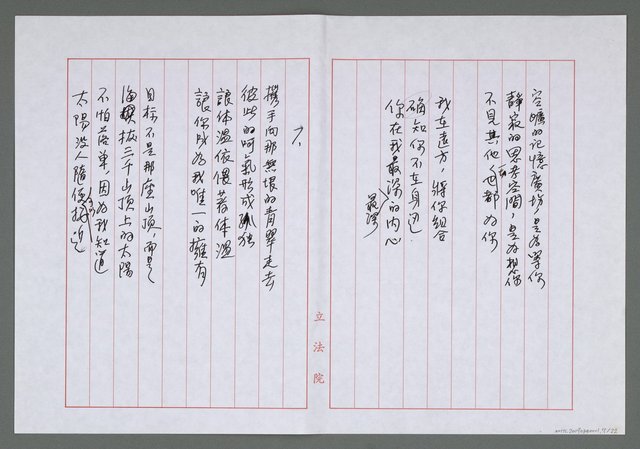 空曠的記憶廣場，是為等你
靜寂的思考空間，是為想你
不見其他，也都為你
我在遠方，將你組合
確知你不在身邊
你在我最深的內心
最深
7.
攜手向那無垠的青翠走去
彼此的呵氣形成孤独
讓体溫依偎著体溫
讓你成為我唯一的擁有
目标不是那座山頂，而是
海拔三千山頂上的太陽
不怕落单，因為我知道
太陽沒人隨便接近
立法院